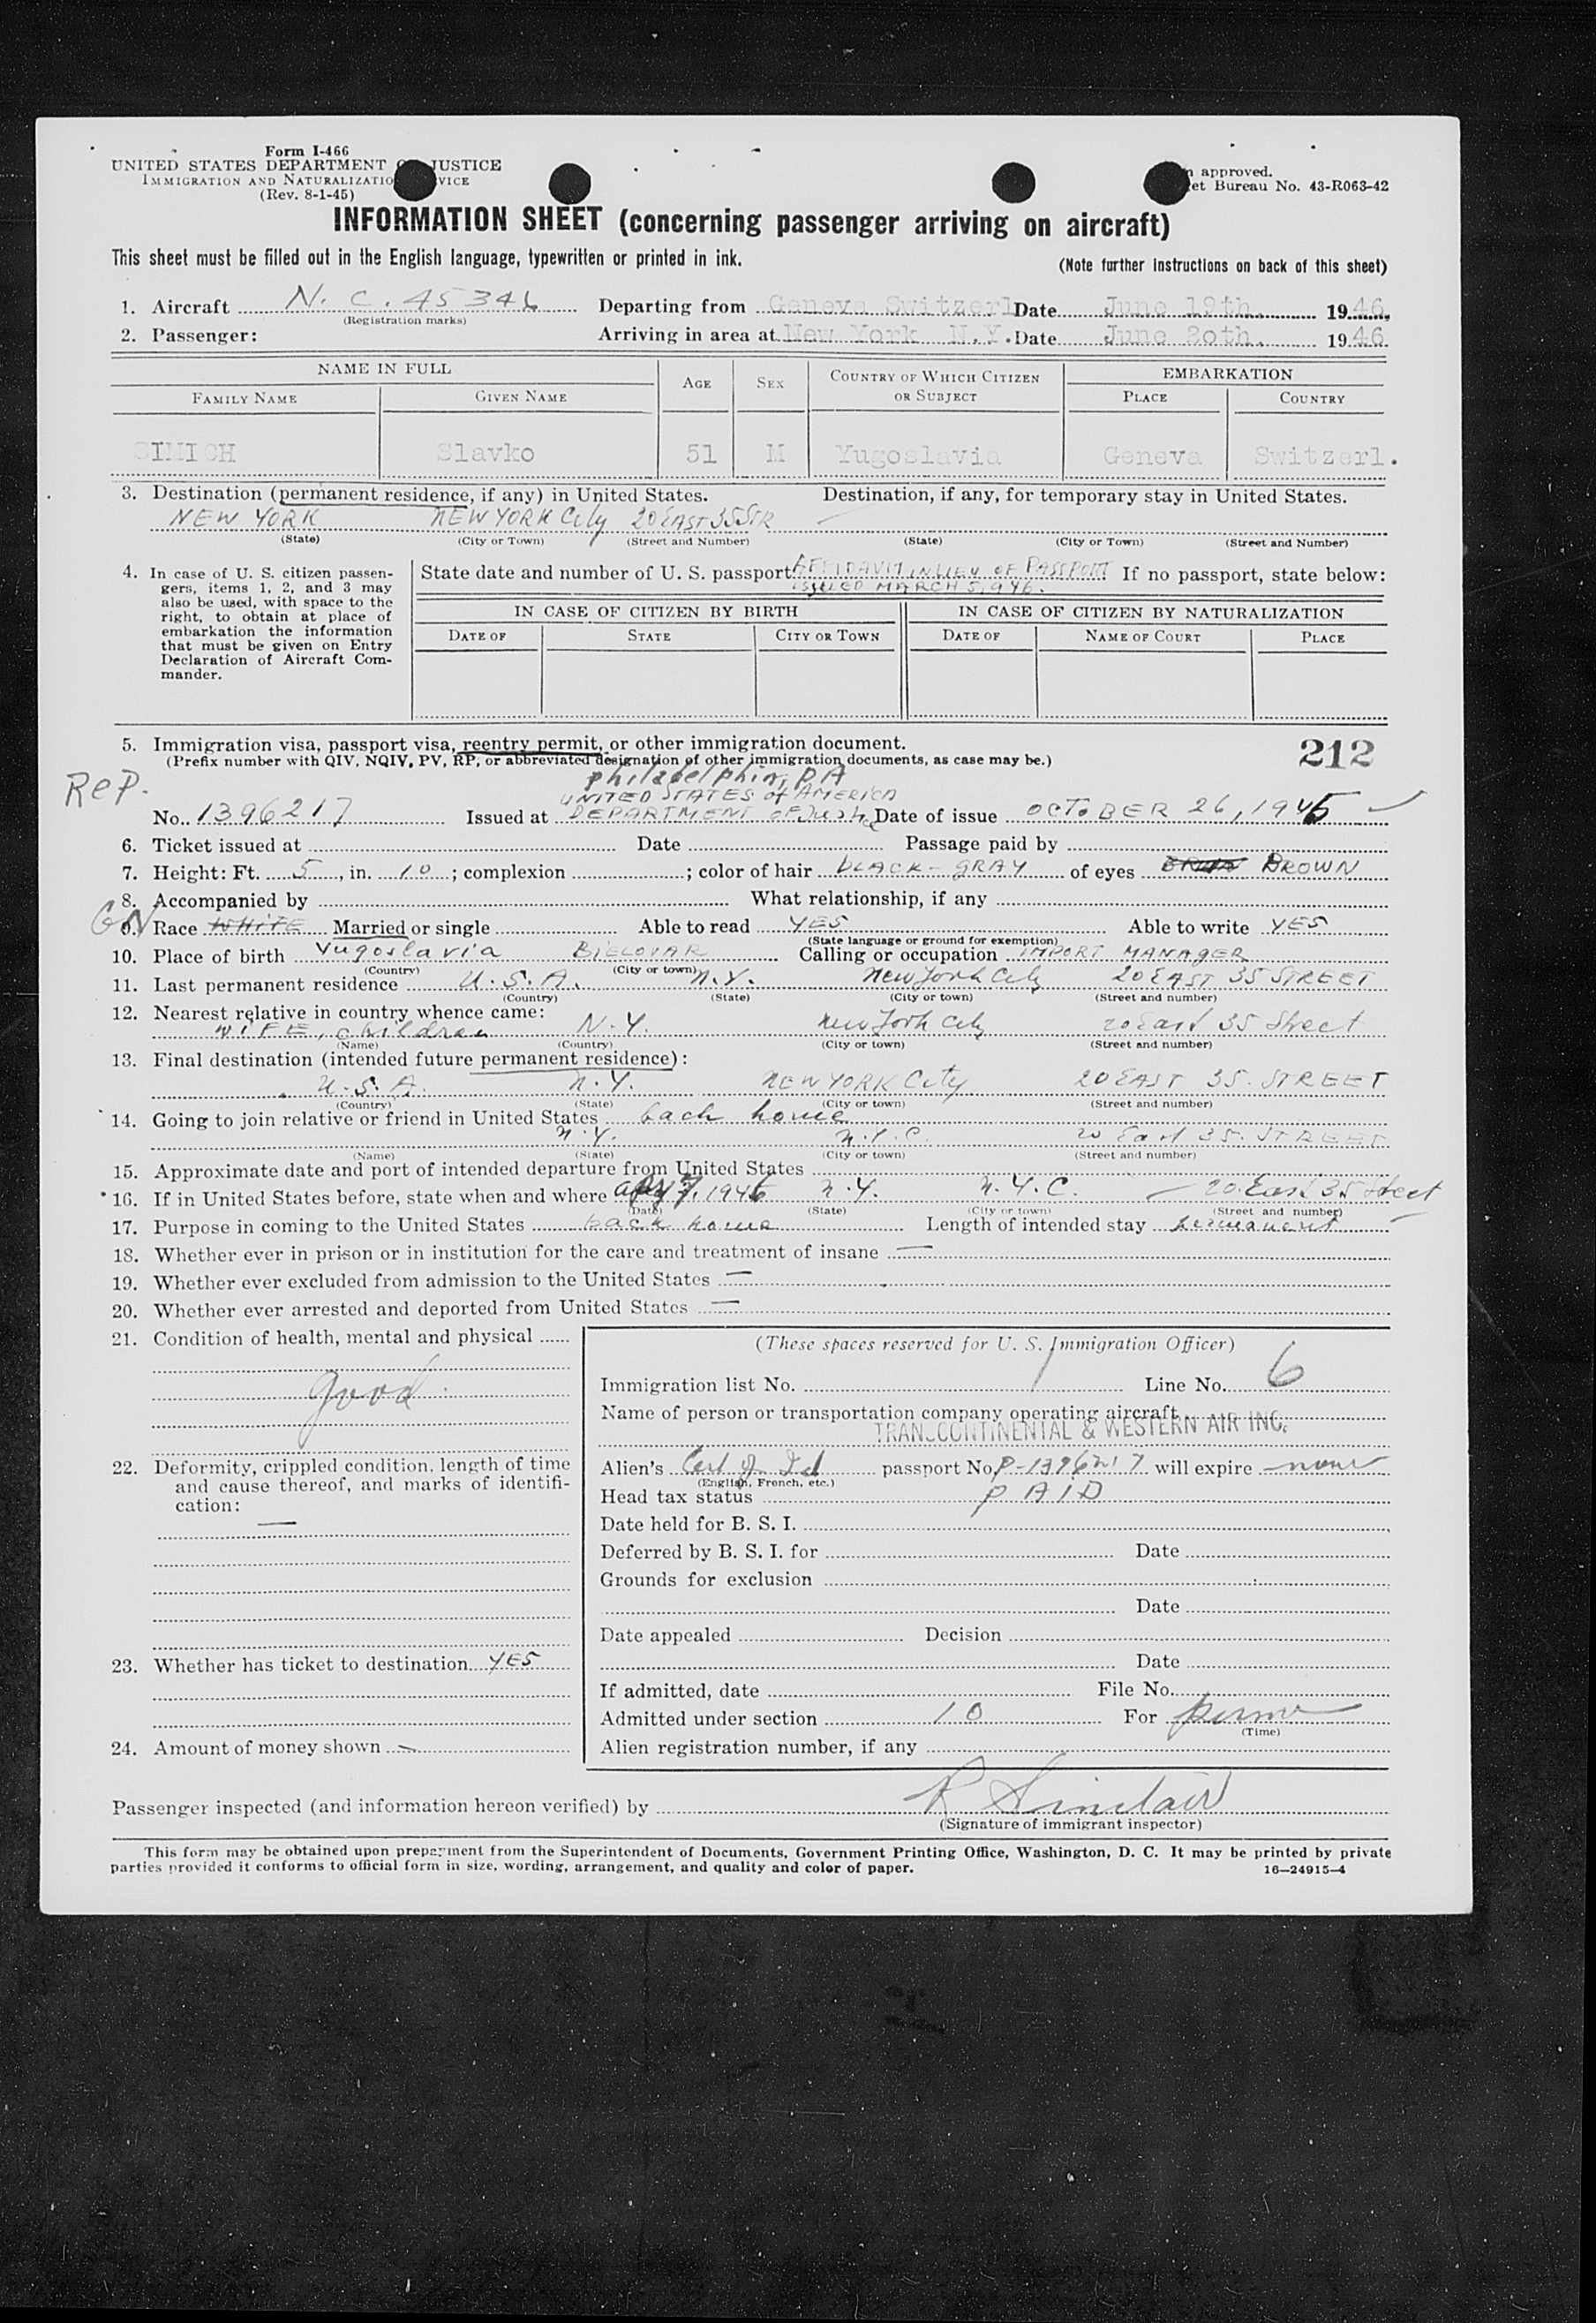 Form I-466
UNITED STATES DEPARTMENT JUSTICE
IMMIGRATION AND NATURALIZATIO VICE
(Rev. 8-1-45)
approved.
et Bureau No. 43-R063-42
INFORMATION SHEET (concerning passenger arriving on aircraft)
This sheet must be filled out in the English language, typewritten or printed in ink.
(Note further instructions on back of this sheet)
1. Aircraft N. C. 45346 Departing from Geneva Switzerl Date June 19th. 1946,
(Registration marks)
2. Passenger: Arriving in area at New York N.Y. Date June 20th. 1946
NAME IN FULL AGE SEX COUNTRY OF WHICH CITIZEN OR SUBJECT EMBARKATION
FAMILY NAME GIVEN NAME PLACE COUNTRY
SIMICH Slavko 51 M Yugoslavia Geneva Switzerl.
3. Destination (permanent residence, if any) in United States. Destination, if any, for temporary stay in United States.
NEW YORK NEW YORK City 20 EAST 35 STR
(State) (City or Town) (Street and Number) (State) (City or Town) (Street and Number)
4. In case of U. S. citizen passengers, items 1, 2, and 3 may also be used, with space to the right, to obtain at place of embarkation the information that must be given on Entry Declaration of Aircraft Commander.
State date and number of U. S. passport AFFIDAVIT IN LIEU OF PASSPORT If no passport, state below:
ISSUED MARCH 5, 946.
IN CASE OF CITIZEN BY BIRTH IN CASE OF CITIZEN BY NATURALIZATION
DATE OF STATE CITY OR TOWN DATE OF NAME OF COURT PLACE
5. Immigration visa, passport visa, reentry permit, or other immigration document.
212
(Prefix number with QIV, NQIV, PV, RP, or abbreviated designation of other immigration documents, as case may be.)
ReP.
philadelphia, PA
UNITED STATES of AMERICA
No. 1396217 Issued at DEPARTMENT of Justice Date of issue OCTOBER 26, 1945
6. Ticket issued at Date Passage paid by
7. Height: Ft. 5, in. 10; complexion; color of hair BLACK-GRAY of eyes BROWN
8. Accompanied by What relationship, if any
9. Race WHITE Married or single Able to read YES Able to write YES
(State language or ground for exemption)
10. Place of birth Yugoslavia BIELOVAR Calling or occupation IMPORT MANAGER
(Country) (City or town)
11. Last permanent residence U.S.A. N.Y. New York City 20 EAST 35 STREET
(Country) (State) (City or town) (Street and number)
12. Nearest relative in country whence came:
WIFE, children N.Y. New York City 20 East 35 Street
(Name) (Country) (City or town) (Street and number)
13. Final destination (intended future permanent residence):
U.S.A. N.Y. NEW YORK City 20 EAST 35. STREET
(Country) (State) (City or town) (Street and number)
14. Going to join relative or friend in United States back home
N.Y. N.Y.C. 20 East 35. STREET
(Name) (State) (City or town) (Street and number)
15. Approximate date and port of intended departure from United States
16. If in United States before, state when and where 7, 1946 N.Y. N.Y.C. 20. East 35 Street
(Date) (State) (City or town) (Street and number)
17. Purpose in coming to the United States back home Length of intended stay permanent
18. Whether ever in prison or in institution for the care and treatment of insane —
19. Whether ever excluded from admission to the United States —
20. Whether ever arrested and deported from United States —
21. Condition of health, mental and physical
good
(These spaces reserved for U. S. Immigration Officer)
Immigration list No. Line No. 6
Name of person or transportation company operating aircraft
TRANSCONTINENTAL & WESTERN AIR INC.
22. Deformity, crippled condition, length of time and cause thereof, and marks of identification:
—
Alien's Cert of Id passport No. P-1396217 will expire none
(English, French, etc.)
Head tax status PAID
Date held for B. S. I.
Deferred by B. S. I. for Date
Grounds for exclusion
Date
Date appealed Decision
23. Whether has ticket to destination YES
Date
If admitted, date File No.
Admitted under section 10 For
(Time)
24. Amount of money shown —
Alien registration number, if any
Passenger inspected (and information hereon verified) by R Sinclair
(Signature of immigrant inspector)
This form may be obtained upon prepayment from the Superintendent of Documents, Government Printing Office, Washington, D. C. It may be printed by private
parties provided it conforms to official form in size, wording, arrangement, and quality and color of paper.
16—24915-4